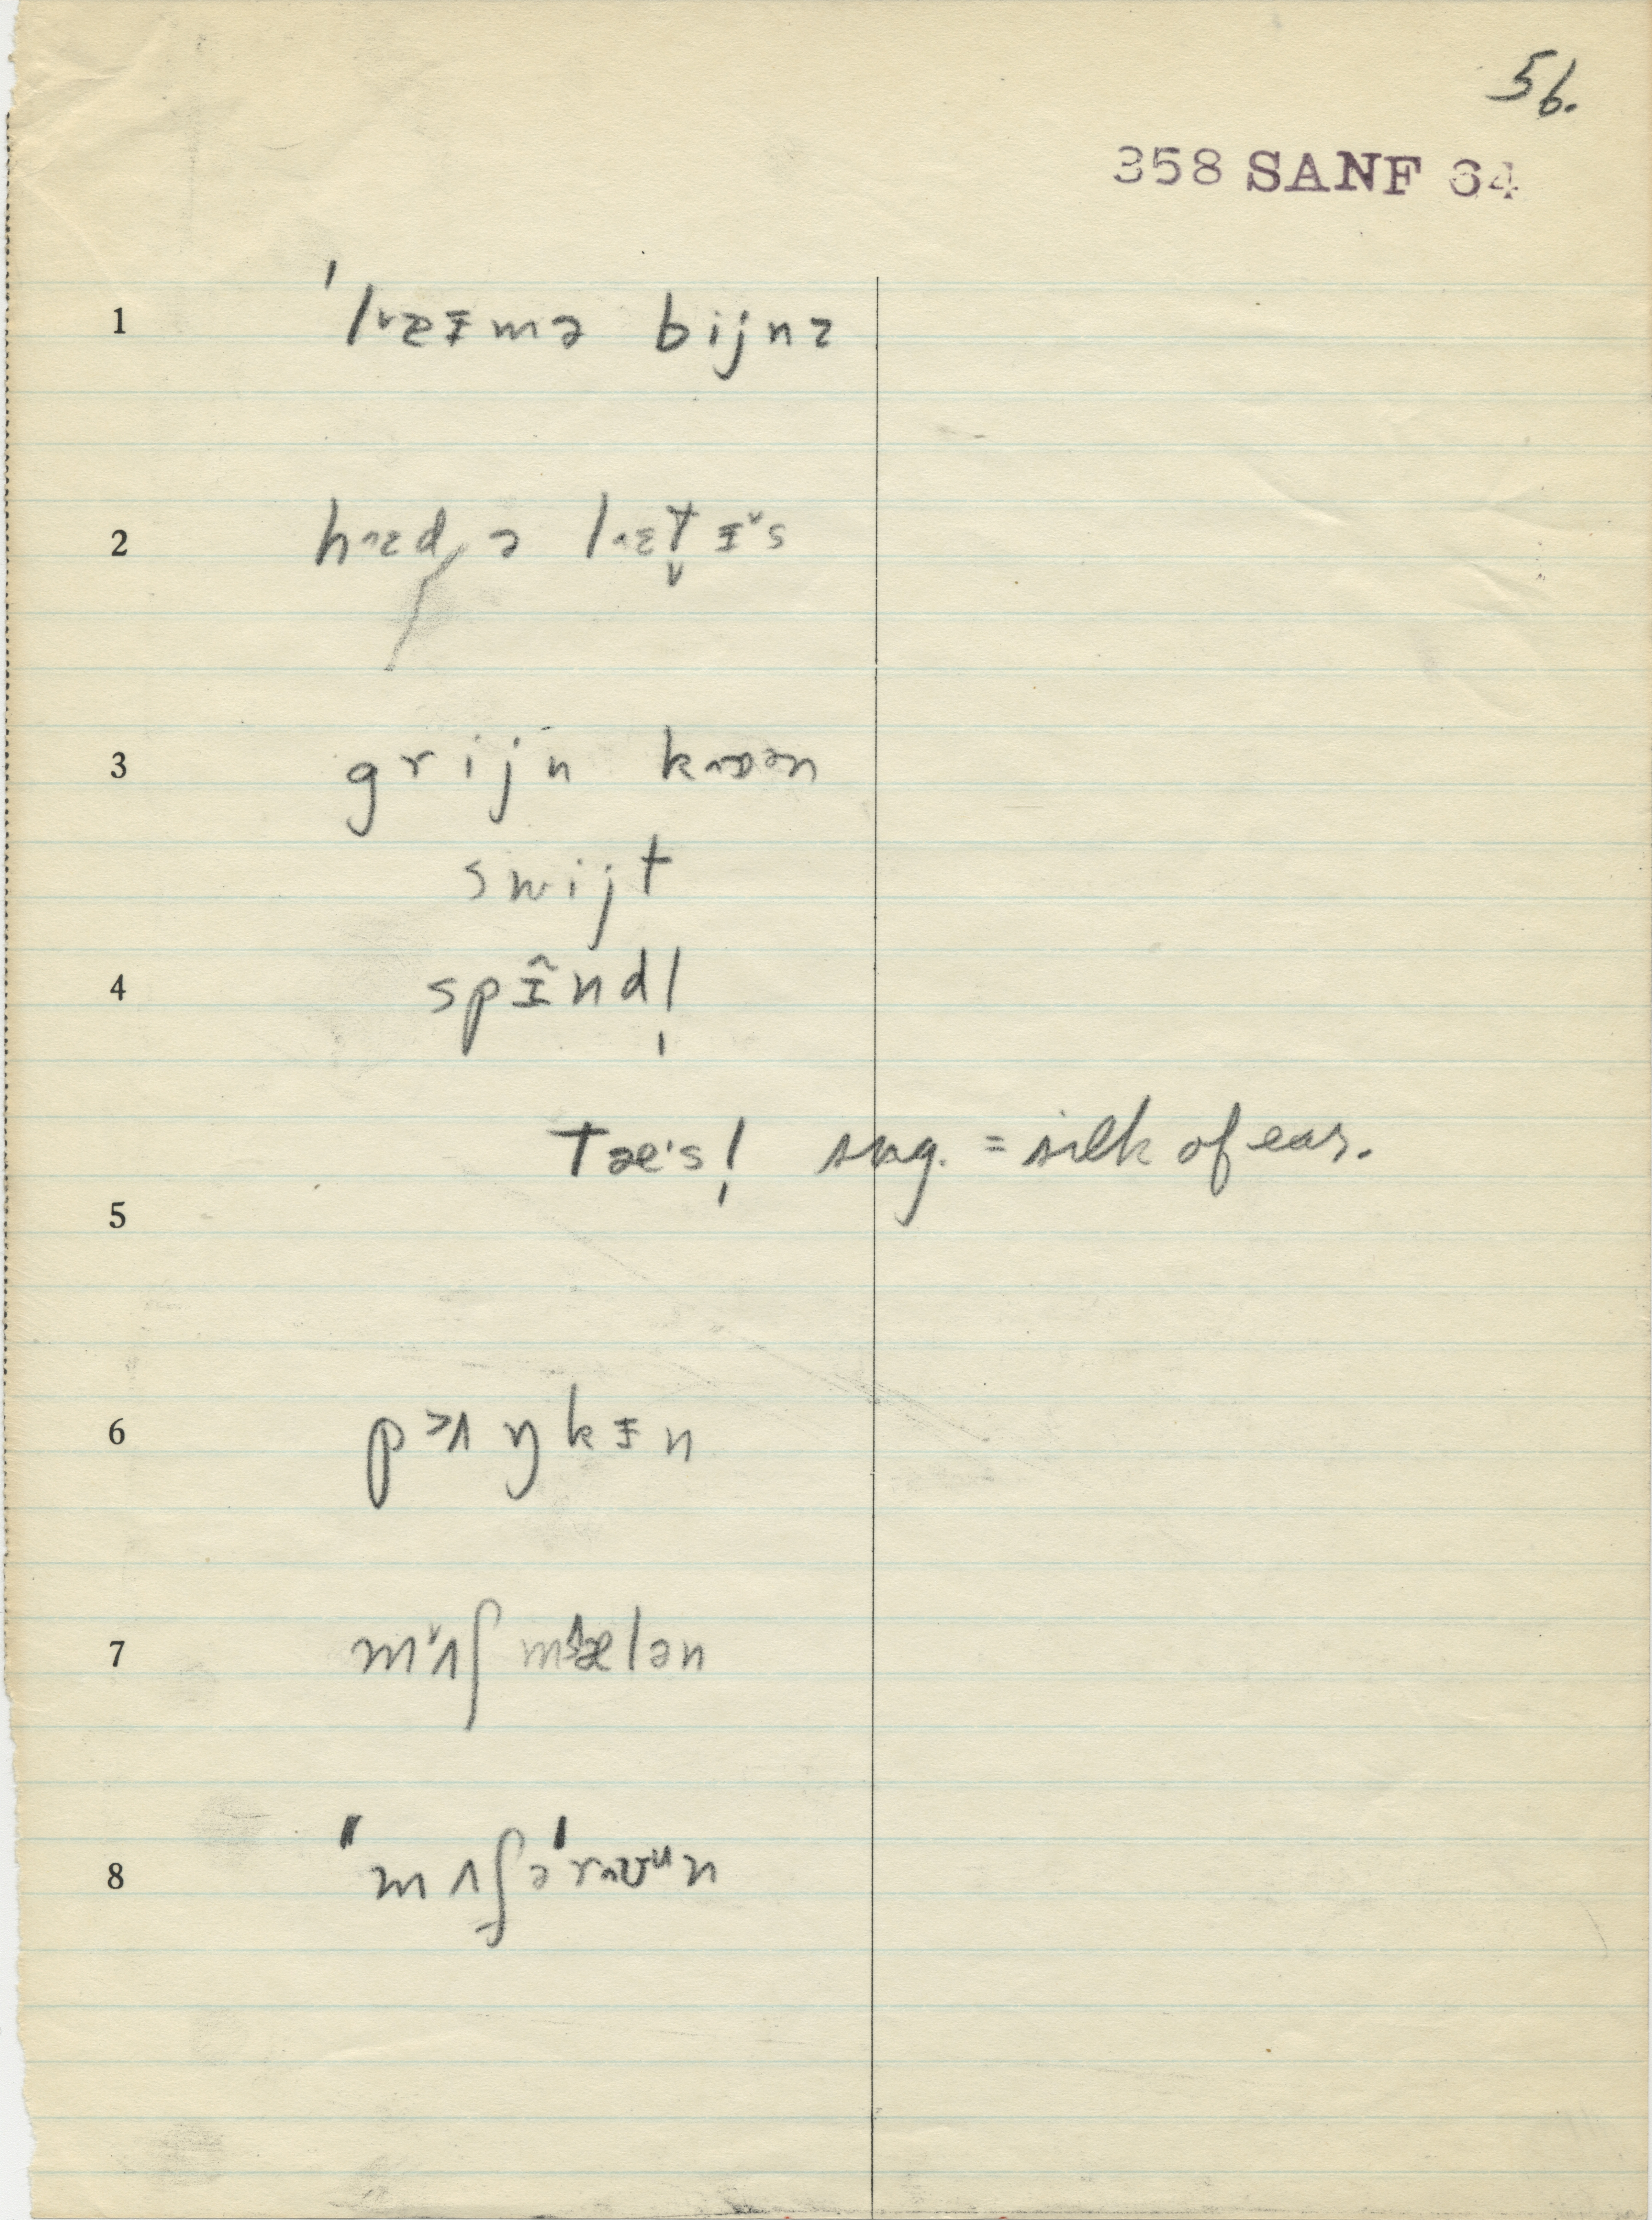 56.
358 SANF 64
1 ˈlæɪmə bijnz
2 hæd ə læt̬ɪˇs
3 grijn kɒən
swijt
4 spɪ̃nd!
tæˈs! sug. = silk of ear.
5
6 pʌŋkɪn
7 mʌʃ mɛlən
8 ˈmʌʃəˈrʊᵘn